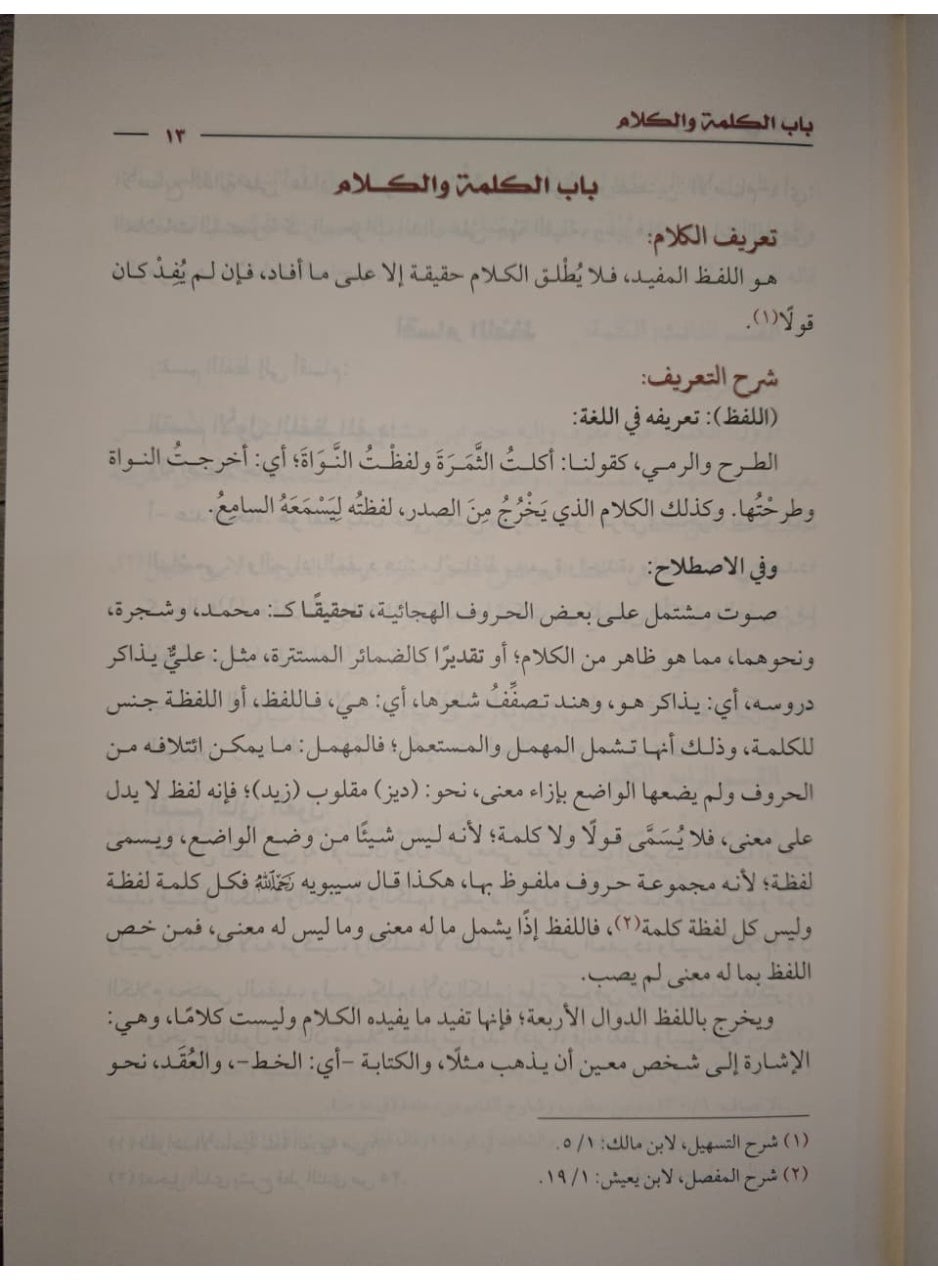 باب الكلمة والكلام
١٣
باب الكلمة والكلام
تعريف الكلام:
هو اللفظ المفيد، فلا يُطْلق الكلام حقيقة إلا على ما أفاد، فإن لم يُفِدْ كان
قولًا(١).
شرح التعريف:
(اللفظ): تعريفه في اللغة:
الطرح والرمي، كقولنا: أكلتُ الثَّمَرَةَ ولفظْتُ النَّوَاةَ؛ أي: أخرجتُ النواة
وطرحْتُها. وكذلك الكلام الذي يَخْرُجُ مِنَ الصدر، لفظتُه لِيَسْمَعَهُ السامِعُ.
وفي الاصطلاح:
صوت مشتمل على بعض الحروف الهجائية، تحقيقًا كـ: محمد، وشجرة،
ونحوهما، مما هو ظاهر من الكلام؛ أو تقديرًا كالضمائر المستترة، مثل: عليٌّ يذاكر
دروسه، أي: يذاكر هو، وهند تصفِّفُ شعرها، أي: هي، فاللفظ، أو اللفظة جنس
للكلمة، وذلك أنها تشمل المهمل والمستعمل؛ فالمهمل: ما يمكن ائتلافه من
الحروف ولم يضعها الواضع بإزاء معنى، نحو: (ديز) مقلوب (زيد)؛ فإنه لفظ لا يدل
على معنى، فلا يُسَمَّى قولًا ولا كلمة؛ لأنه ليس شيئًا من وضع الواضع، ويسمى
لفظة؛ لأنه مجموعة حروف ملفوظ بها، هكذا قال سيبويه رَحِمَهُ اللَّهُ فكل كلمة لفظة
وليس كل لفظة كلمة(٢)، فاللفظ إذًا يشمل ما له معنى وما ليس له معنى، فمن خص
اللفظ بما له معنى لم يصب.
ويخرج باللفظ الدوال الأربعة؛ فإنها تفيد ما يفيده الكلام وليست كلامًا، وهي:
الإشارة إلى شخص معين أن يذهب مثلًا، والكتابة -أي: الخط-، والعُقَد، نحو
(١) شرح التسهيل، لابن مالك: ١/ ٥.
(٢) شرح المفصل، لابن يعيش: ١/ ١٩.